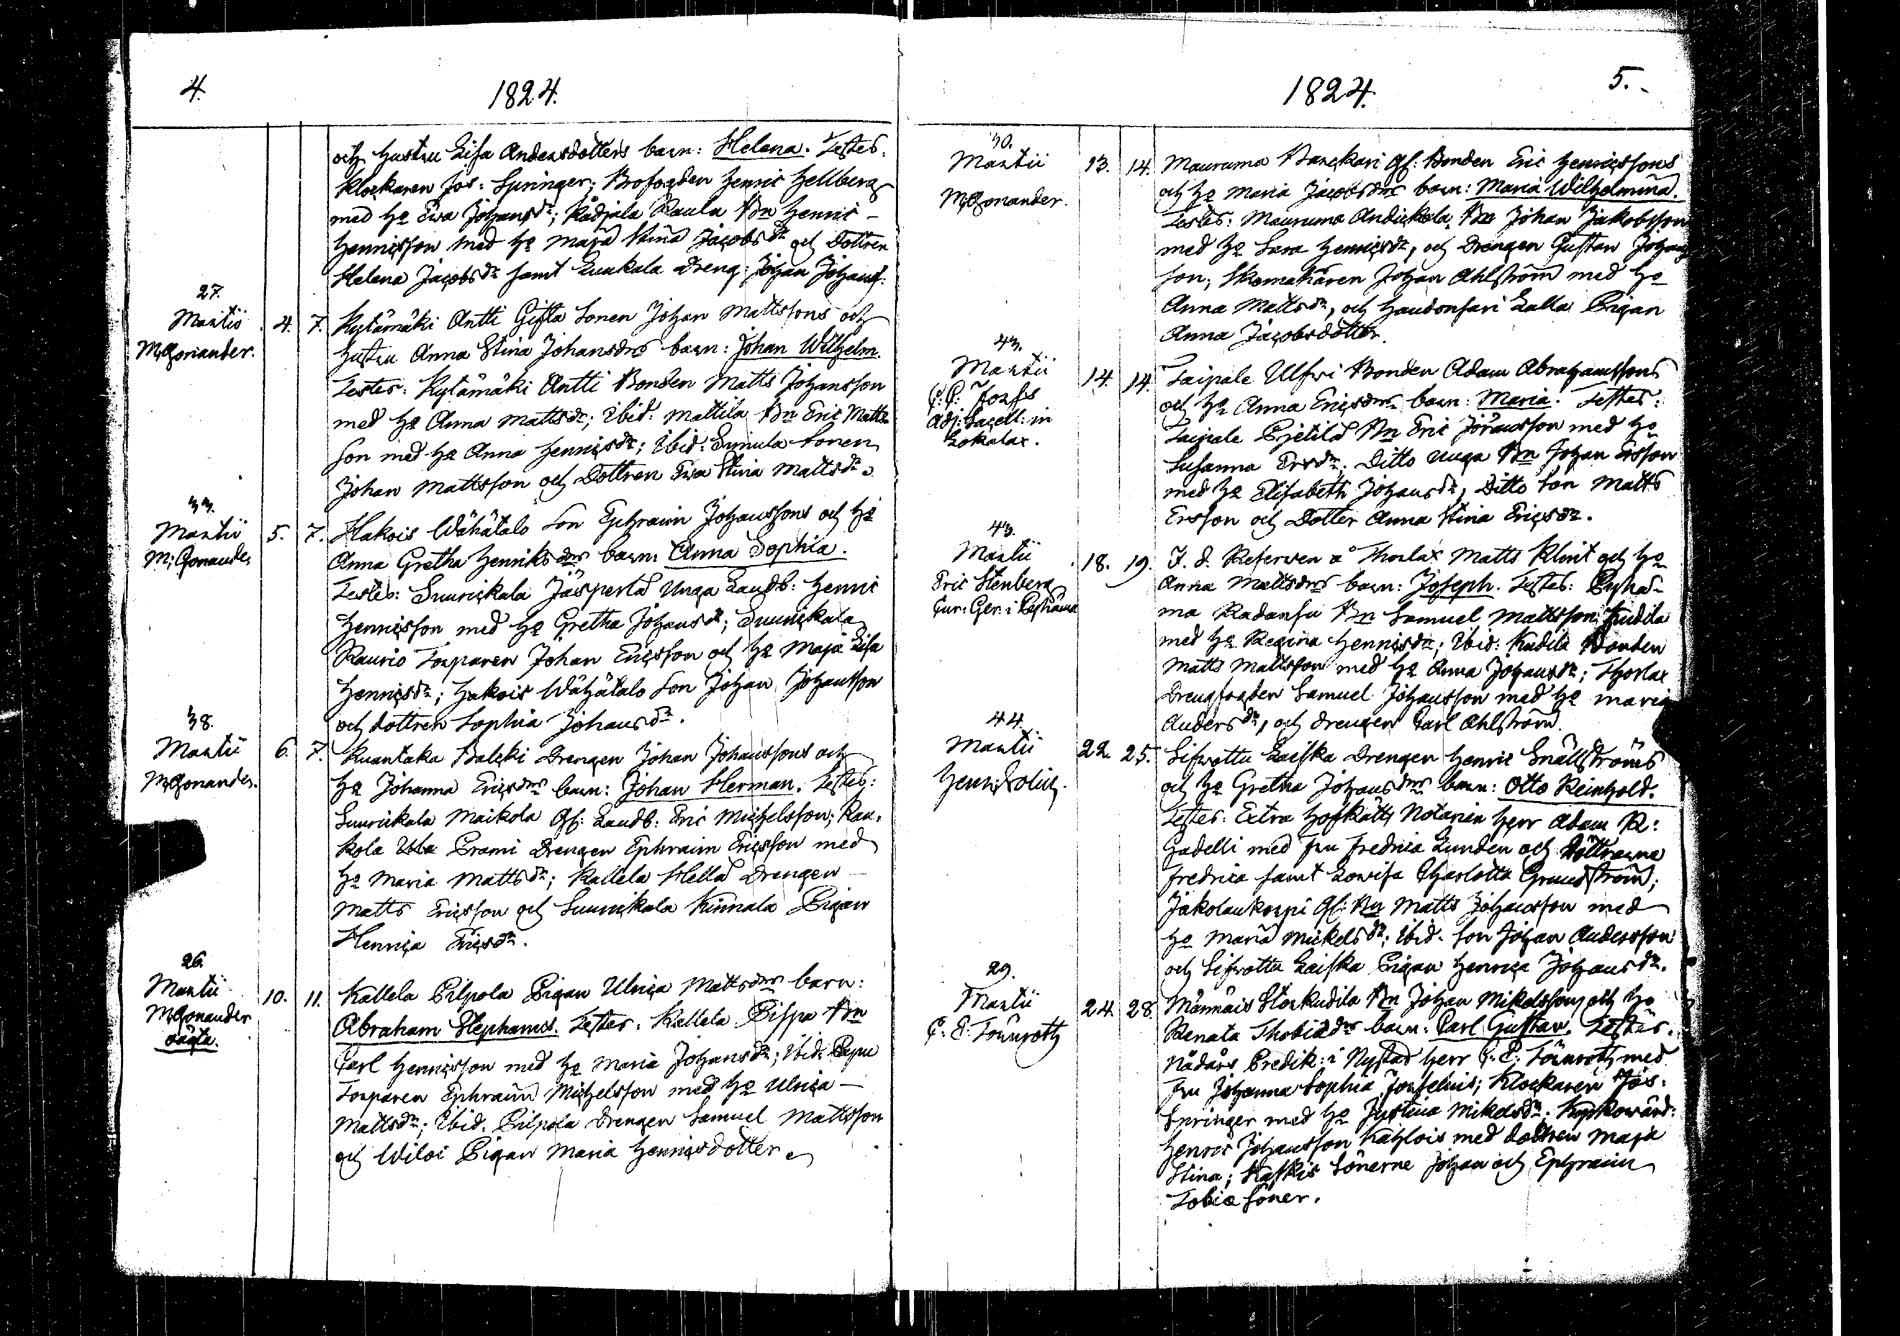 4.
1824.
och hustru Lisa Andersdotters barn: Helena. Testes:
Klockaren Jos: Springer; Brofogden Henric Hellberg
med h: Eva Johansdr; Rådjala Raula Bn Henric
Henricsson med h: Maja Stina Jacobsdr och Dottren
Helena Jacobsdr samt Dreng Johan Johansf:
27.
Martii 4. 7. Kylämäki Antti Gifta Sonen Johan Mattssons och
M: Gonander. hustru Anna Stina Johansdrs barn: Johan Wilhelm.
Testes: Kylämäki Antti Bonden Matts Johansson
med h: Anna Mattsdr; ibid: Mattila Bn Eric Matts-
son med h: Anna Henricsdr; ibid: Simula Sonen
Johan Mattsson och Dottren Eva Stina Mattsdr.
33.
Martii 5. 7. Hakois Wähätalo Son Ephraim Johanssons och h:
M: Gonander Anna Gretha Henriksdrs barn: Anna Sophia.
Testes: Suurickala Jäsperlä Unga Landb: Henric
Henricsson med h: Gretha Johansdr; Suurickala
Raurio Torparen Johan Ericsson och h: Maja Lisa
Henricsdr; Hakois Wähätalo Son Johan Johansson
och dottren Sophia Johansdr.
38.
Martii 6. 7. Ruantaka Balcki Drengen Johan Johanssons och
M: Gonander. h: Johanna Ericsdrs barn: Johan Herman. Testes:
Suurickala Maikola Gf: Landb: Eric Michelsson; Rau-
kola Prami Drengen Ephraim Ericsson med
h: Maria Mattsdr; Kallela Hellä Drengen
Matts Ericsson och Suurickala Kinnala Pigan
Henrica Ericsdr.
26.
Martii 10. 11. Kallela Pilpola Pigan Ulrica Mattsdrs barn:
M: Gonander Abraham Stephanus. Testes: Kallela Pispa Bn
oägta. Carl Henricsson med h: Maria Johansdr; ibid:
Torparen Ephraim Michelsson med h: Ulrica
Mattsdr; ibid. Pilpola Drengen Samuel Mattsson
och Wiloi Pigan Maria Henricsdotter.
1824.
5.
30.
Martii 13. 14. Mauruma Banckari Gf: Bonden Eric Henricssons
M: Gonander. och h: Maria Jacobsdrs barn: Maria Wilhelmina.
Testes: Mauruma Andickala Bn Johan Jakobsson
med h: Sara Henricsdr, och Drengen Gustav Johans-
son, Skomakaren Johan Ahlström med h:
Anna Mattsdr, och Lalla Pigan
Anna Jacobsdotter.
43.
Martii 14. 14. Taipale Ulfvi Bonden Adam Abrahamssons
Adj: Sacell: in och h: Anna Ericsdrs barn: Maria. Testes:
Lokalax. Taipale Prjetilä Bn Eric Johansson med h:
Susanna Ersdr; Ditto unga Bn Johan Ersson
med h: Elisabeth Johansdr, Ditto Son Matts
Ersson och Dotter Anna Stina Ericsdr.
43.
Martii 18. 19. F. d. Reserven å Thorlax Matts Klint och h:
Eric Stenberg Anna Mattsdrs barn: Joseph. Testes: Pyhä-
Cur: Ger: i Pyhäma ma Radansu Bn Samuel Mattsson Kudila
med h: Regina Henricsdr; ibid: Kudila Bonden
Matts Mattsson med h: Anna Johansdr; Thorlax
Drengfogden Samuel Johansson med h: Maria
Andersdr, och drengen Carl Ahlström.
44.
Martii 22. 25. Sifvottu Laiska Drengen Henric Snällströms
Henr: Polin. och h: Gretha Johansdrs barn: Otto Reinhold.
Testes: Extra Hofrätts Notarien Herr Adam R:
Gadelli med fru Fredrica Lunden och döttrarna
Fredrica samt Lowisa Charlotta Grundström;
Jakolankorpi Gf: Bn Matts Johansson med
h: Maria Mickelsdr; ibid. Son Johan Andersson
och Sifvottu Laiska Pigan Henrica Johansdr.
29.
Martii 24. 28. Männäis Storkudila Bn Johan Mikelssons och h:
C. E. Tönnroth Renata Thobiædrs barn: Carl Gustav. Testes:
Nådårs Predik: i Nystad Herr C. E. Tönnroth med
fru Johanna Sophia Josselius; Klockaren Jos:
Springer med h: Justina Mikelsdr; Kyrkowärd:
Henric Johansson Kahlois med dottren Maja
Stina; Sönerne Johan och Ephraim
Tobiæ Söner.